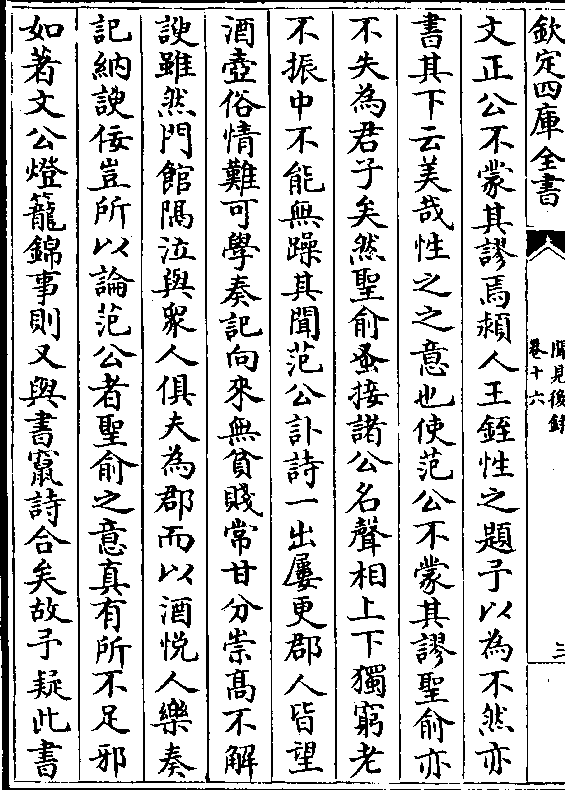 欽定四庫全書
聞見後録
卷十六
三
文正公不蒙其謬焉潁人王銍性之題予以為不然亦
書其下云美哉性之之意也使范公不蒙其謬聖俞亦
不失為君子矣然聖俞蚤接諸公名聲相上下獨窮老
不振中不能無躁其聞范公訃詩一出屢更郡人皆望
酒壺俗情難可學奏記向來無貧賤常甘分崇髙不解
諛雖然門館隔泣與衆人俱夫為郡而以酒悦人樂奏
記納諛佞豈所以論范公者聖俞之意真有所不足邪
如著文公燈籠錦事則又與書竄詩合矣故予疑此書